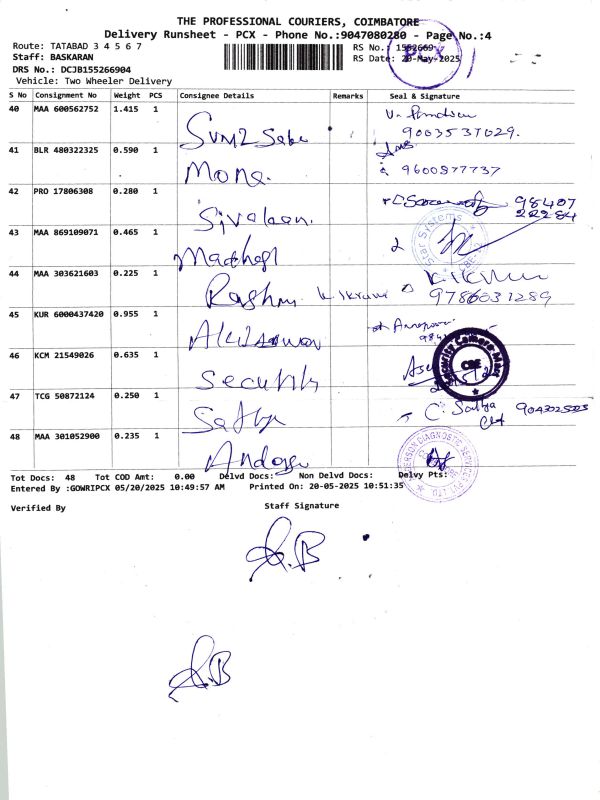 THE PROFESSIONAL COURIERS, COIMBATORE
Delivery Runsheet - PCX - Phone No.:9047080280 - Page No.:4
Route: TATABAD 3 4 5 6 7
Staff: BASKARAN
DRS No.: DCJB155266904
Vehicle: Two Wheeler Delivery
RS No.: 1552669
RS Date: 20-May-2025
PCX
S No Consignment No Weight PCS Consignee Details Remarks Seal & Signature
40 MAA 600562752 1.415 1
9003537029.
41 BLR 480322325 0.590 1 Mona.
9600877737
42 PRO 17806308 0.280 1 Sivalaan.
98407
22284
43 MAA 869109071 0.465 1
Star Systems
44 MAA 303621603 0.225 1 Rashmi
9786031289
45 KUR 6000437420 0.955 1
46 KCM 21549026 0.635 1 Security
Security Camera Mart
CBE
47 TCG 50872124 0.250 1 Sathya
C. Sathya
48 MAA 301052900 0.235 1
DIAGNOSTIC SERVICES PVT LTD
Tot Docs: 48 Tot COD Amt: 0.00 Delvd Docs: Non Delvd Docs: Delvy Pts:
Entered By :GOWRIPCX 05/20/2025 10:49:57 AM Printed On: 20-05-2025 10:51:35
Verified By Staff Signature
S.B
S.B